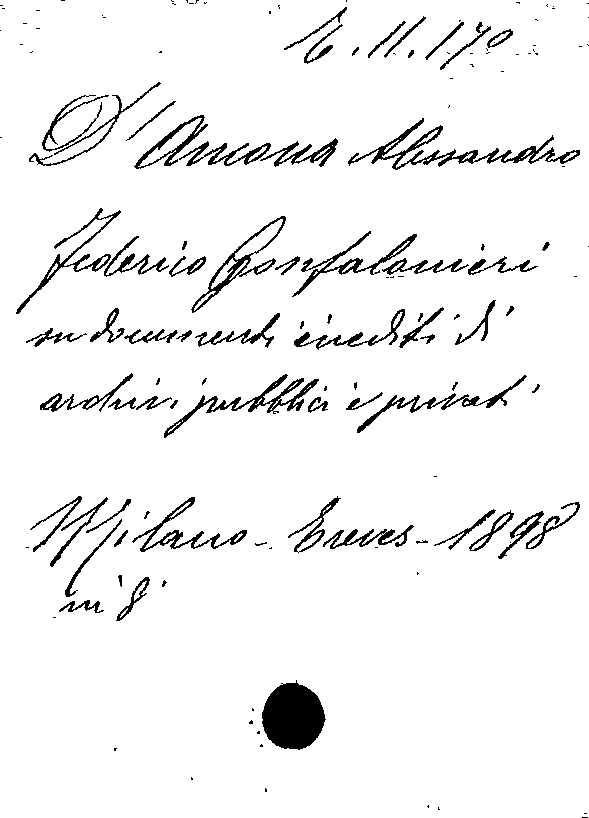 E.11.170
D'Ancona Alessandro
Federico Confalonieri
su documenti inediti di
archivi pubblici e privati
Milano - Treves - 1898
in 8°